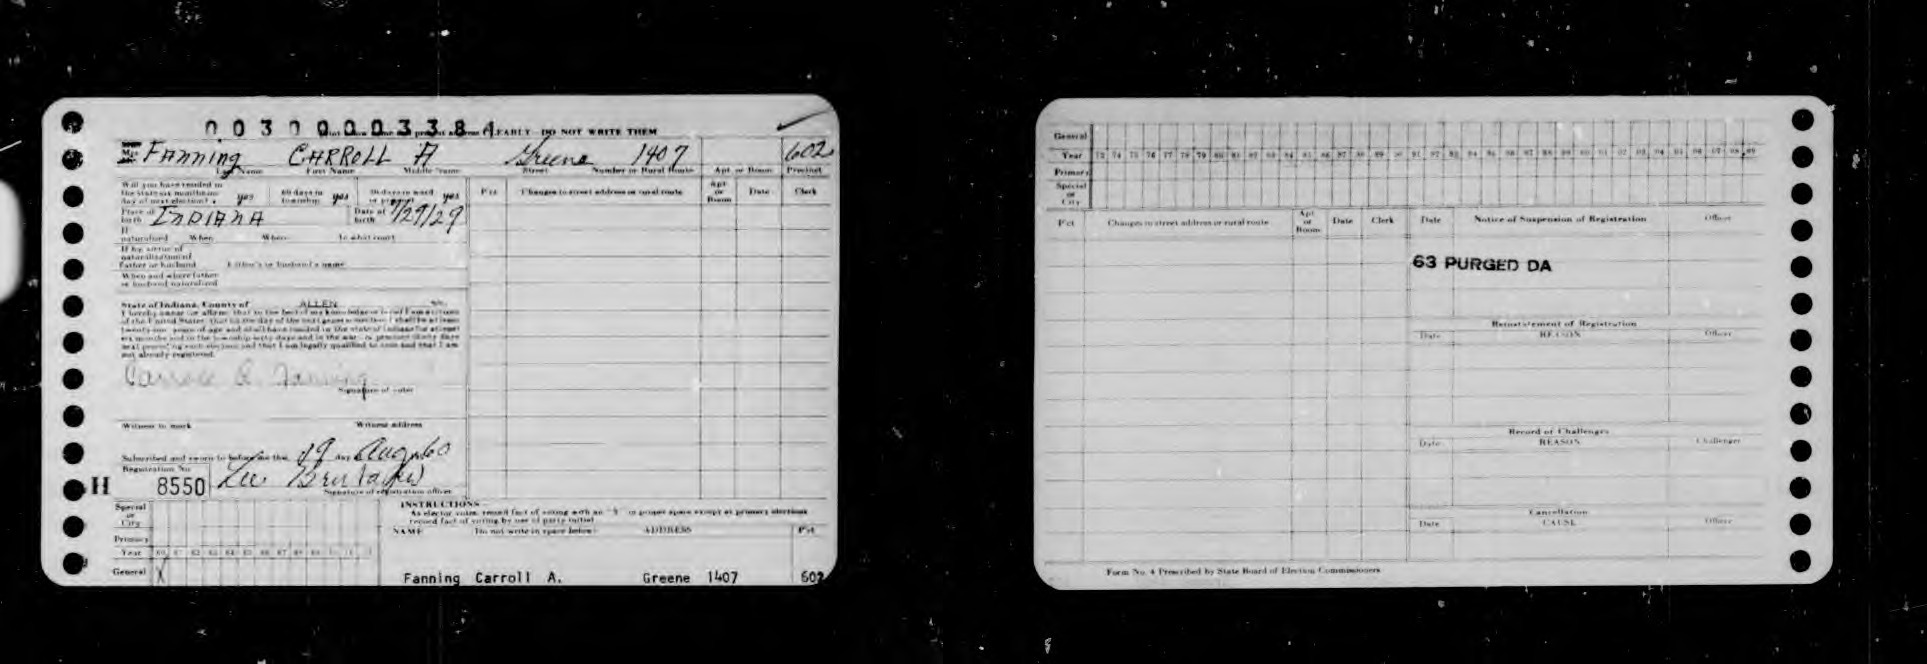 00300003384
CLEARLY - DO NOT WRITE THEM
Fanning CARROLL A Greene 1407 602
Last Name First Name Middle Name Street Number or Rural Route Apt. or Room Precinct
Will you have resided in the state six months on day of next election? yes 60 days in township yes 30 days in ward or precinct yes
P'ct Changes to street address or rural route Apt. or Room Date Clerk
Place of birth INDIANA Date of birth 1/29/29
If naturalized When Where In what court
If by virtue of naturalization of Father or husband Father's or husband's name
When and where father or husband naturalized
State of Indiana, County of ALLEN ss:
I hereby swear (or affirm) that to the best of my knowledge or belief I am a citizen
of the United States, that on the day of the next general election I shall be at least
twenty-one years of age and shall have resided in the state of Indiana for at least
six months and in the township sixty days and in the ward or precinct thirty days
next preceding such election and that I am legally qualified to vote and that I am
not already registered.
Carroll A. Fanning
Signature of voter
Witness to mark Witness address
Subscribed and sworn to before me this 19 day Aug 60
Registration No.
H 8550 Lee
Signature of registration officer
Special or City
Primary
Year 60 61 62 63 64 65 66 67 68 69
General X
INSTRUCTIONS
As elector votes, record fact of voting with an "X" in proper space except at primary elections
record fact of voting by use of party initial
NAME Do not write in space below ADDRESS P'ct
Fanning Carroll A. Greene 1407 602
General
Year 73 74 75 76 77 78 79 80 81 82 83 84 85 86 87 88 89 90 91 92 93 94 95 96 97 98 99 00 01 02 03 04 05 06 07 08 09
Primary
Special or City
P'ct Changes to street address or rural route Apt. or Room Date Clerk
Date Notice of Suspension of Registration Officer
63 PURGED DA
Reinstatement of Registration
Date REASON Officer
Record of Challenges
Date REASON Challenger
Cancellation
Date CAUSE Officer
Form No. 4 Prescribed by State Board of Election Commissioners